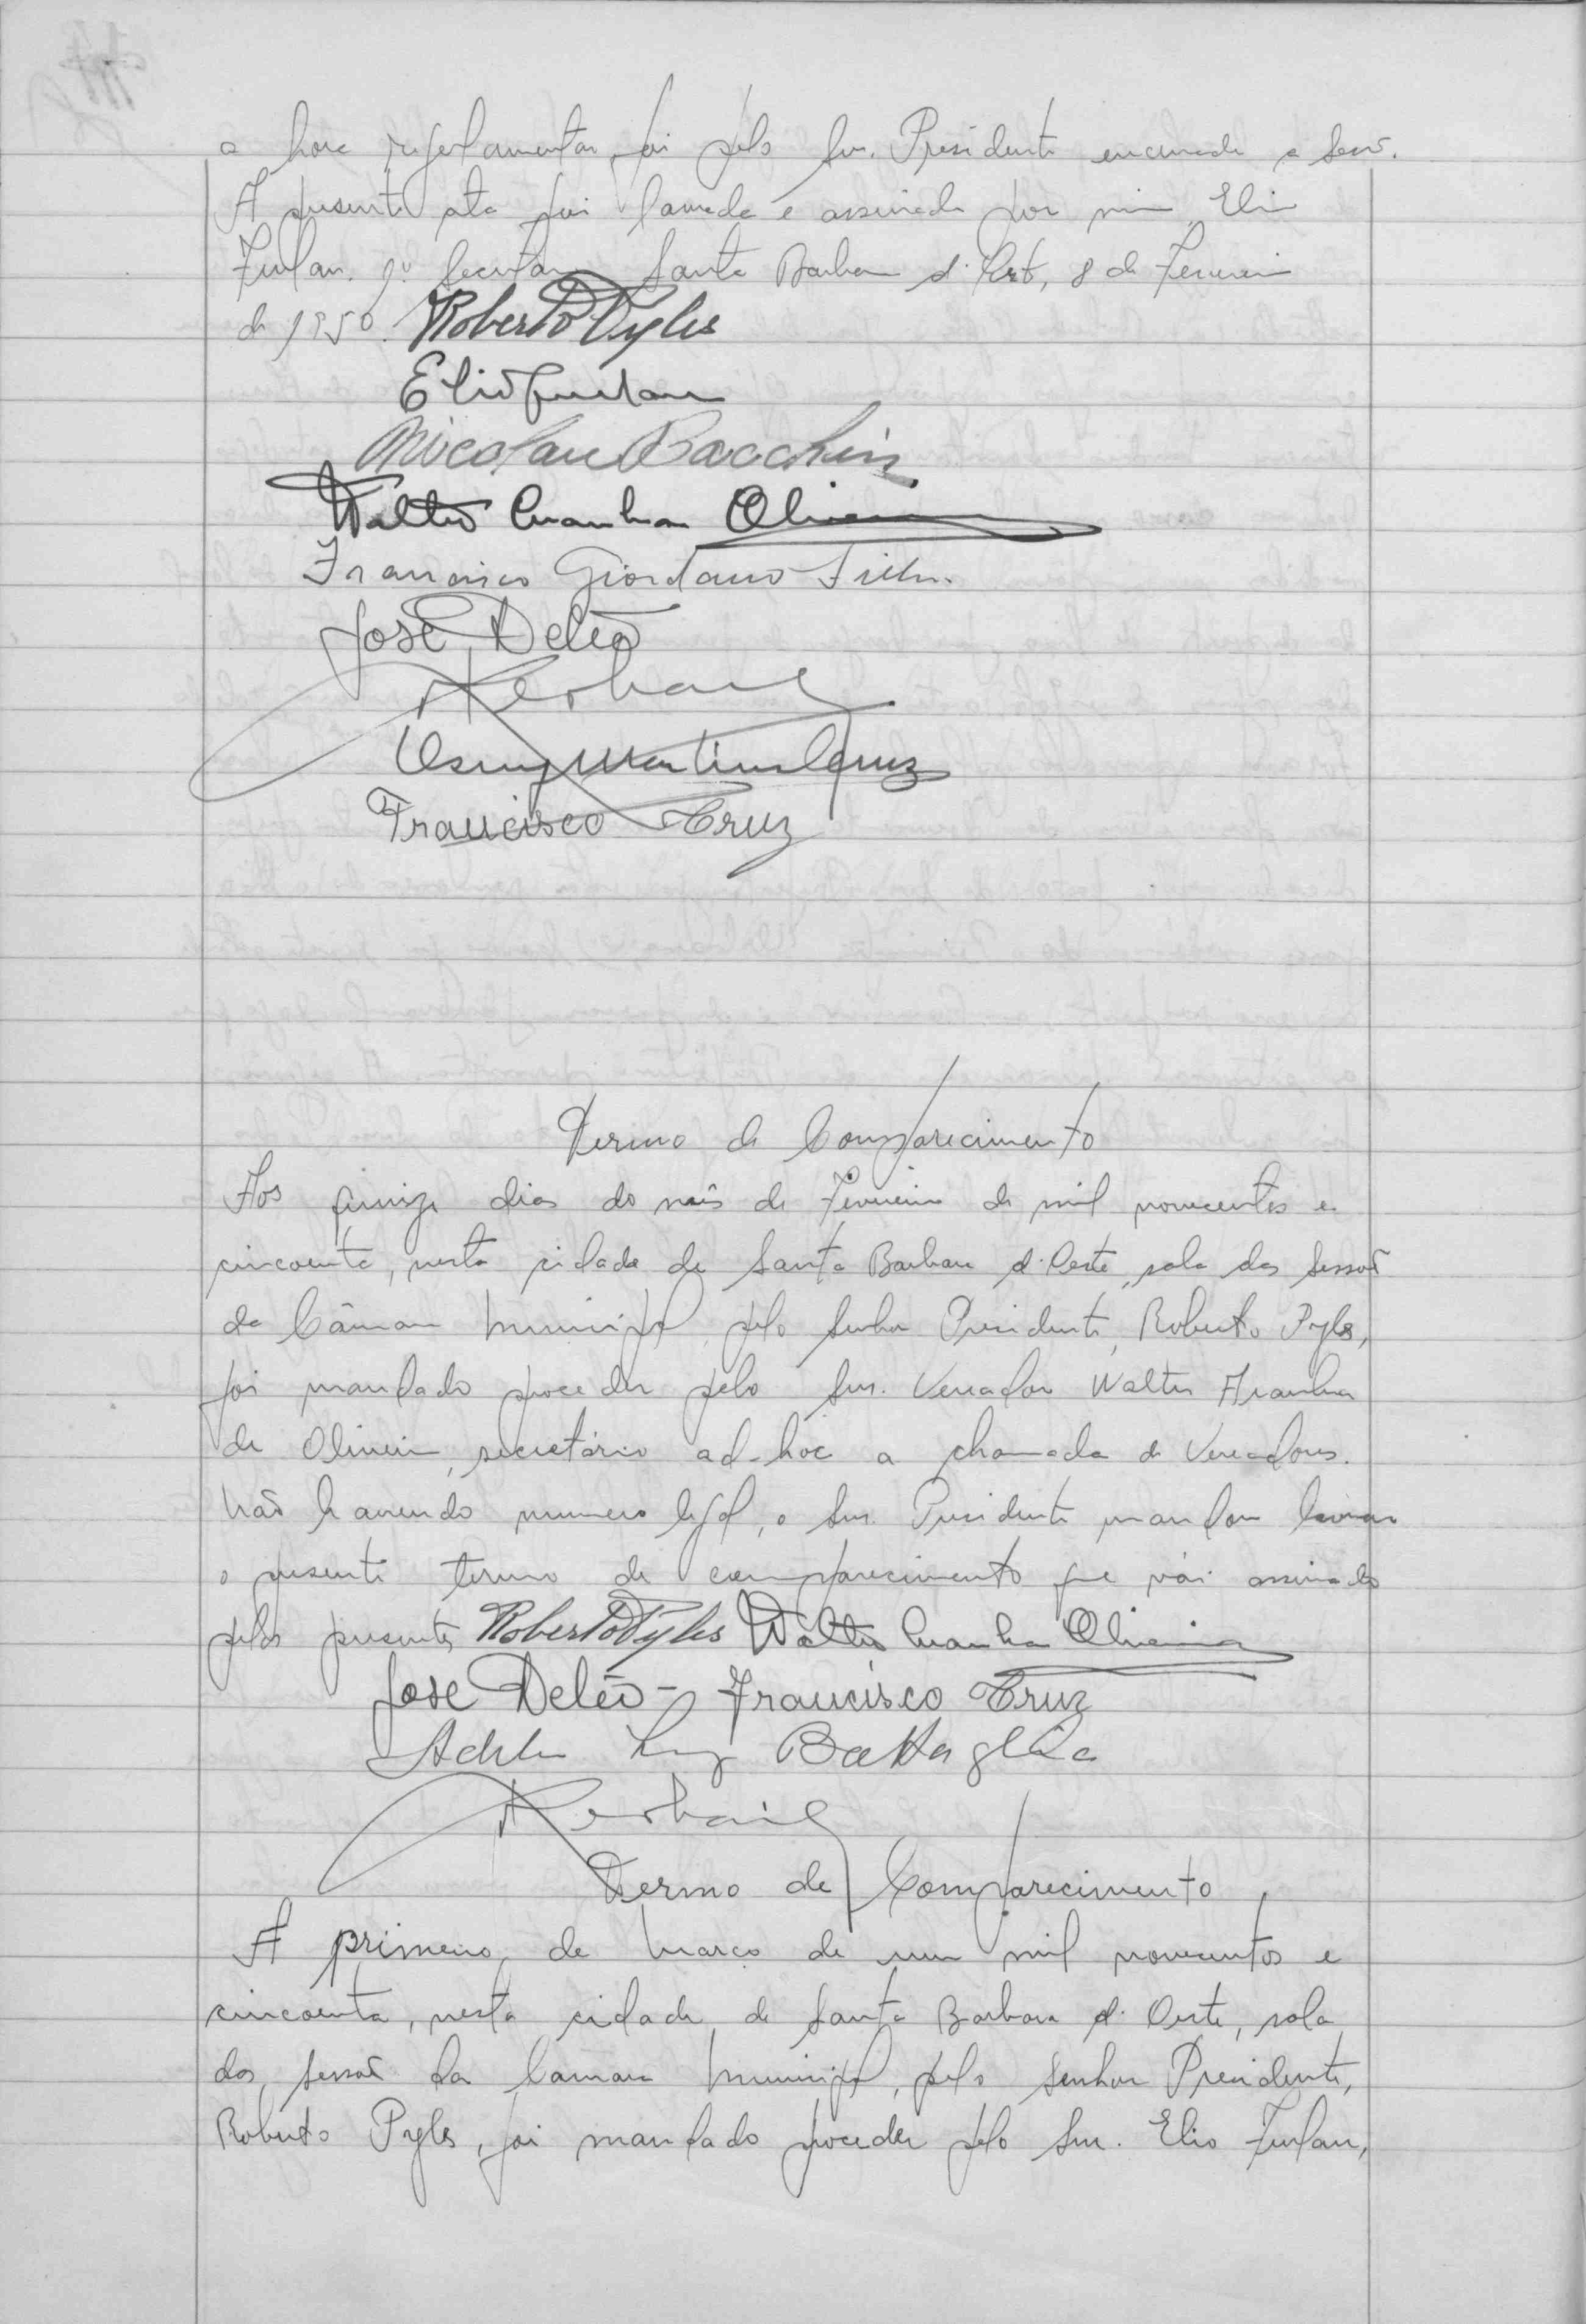 a hora regulamentar, foi pelo Snr. Presidente encerrada a Sessão.
A presente ata foi lavrada e assinada por mim, Elio
Furlan. 1º Secretário Santa Barbara d'Oeste, 8 de Fevereiro
de 1950. Roberto Pyles
Elio Furlan
Nicolau Bacchin
Walter Aranha Oliveira
Francisco Giordano Filho.
José Deleo
Osury Martins Cruz
Francisco Cruz
Termo de Comparecimento
Aos quinze dias do mês de Fevereiro de mil novecentos e
cincoenta, nesta cidade de Santa Barbara d'Oeste, sala das Sessões
da Câmara Municipal, pelo Senhor Presidente, Roberto Pyles,
foi mandado proceder pelo Snr. Vereador Walter Aranha
de Oliveira, secretário ad-hoc a chamada de Vereadores.
Não havendo numero legal, o Snr. Presidente mandou lavrar
o presente termo de comparecimento que vai assinado
pelos presentes, Roberto Pyles Walter Aranha Oliveira
José Deleo - Francisco Cruz
Luiz Battaglia
Termo de Comparecimento
A primeiro, de Março de um mil novecentos e
cincoenta, nesta cidade, de Santa Barbara d'Oeste, sala
das, sessões da Camara Municipal, pelo Senhor Presidente,
Roberto Pyles, foi mandado proceder pelo Snr. Elio Furlan,